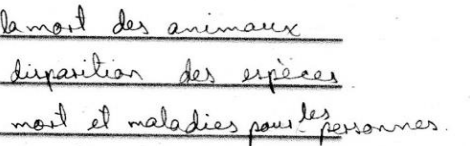 la mort des animaux
disparition des espèces
mort et maladies pour les personnes.